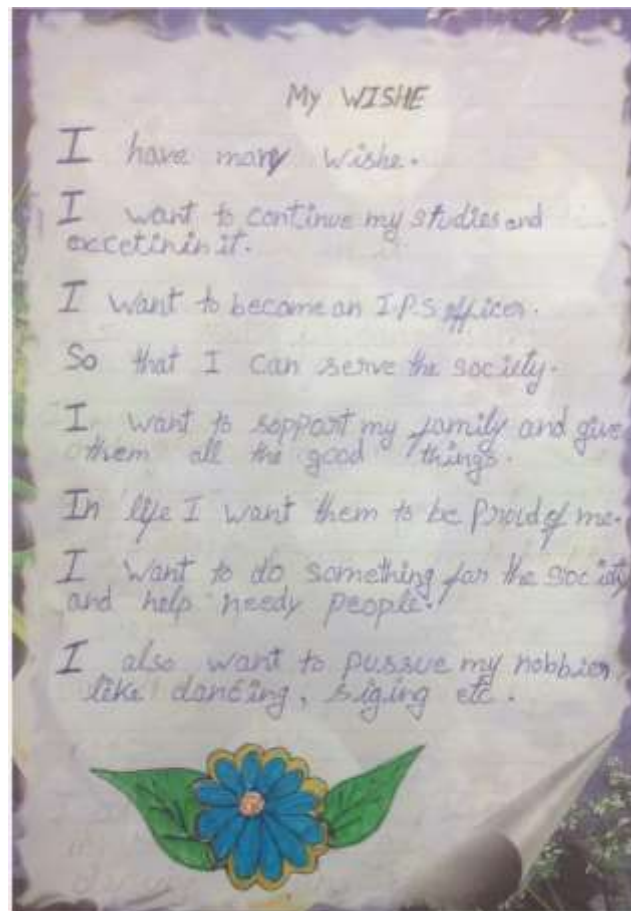 My WISHE
I have many wishe.
I want to continue my studies and
excetin in it.
I want to become an I.P.S officer.
So that I can serve the society.
I want to soppart my family and give
them all the good things.
In life I want them to be proud of me.
I want to do something for the society
and help needy people.
I also want to pussue my nobbies
like dancing, siging etc.